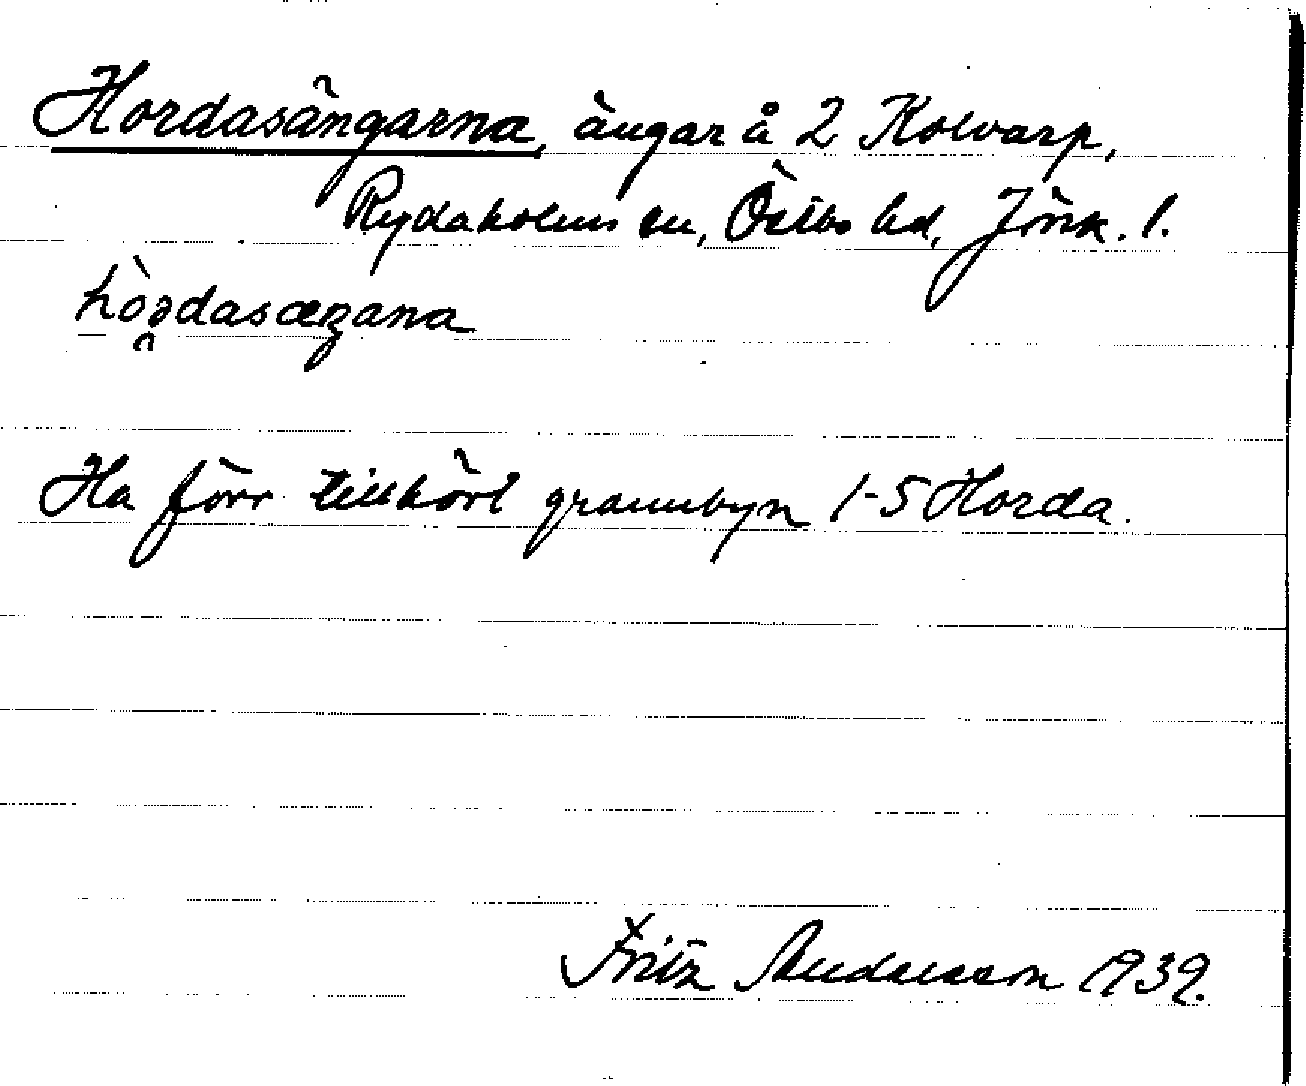 Hordasängarna, ängar å 2 Kolvarp,
Rydaholms sn, Östbo hd, Jönk. l.
hòɷdasæŋana
Ha förr tillhört grannbyn 1-5 Horda.
Fritz Andersson 1939.